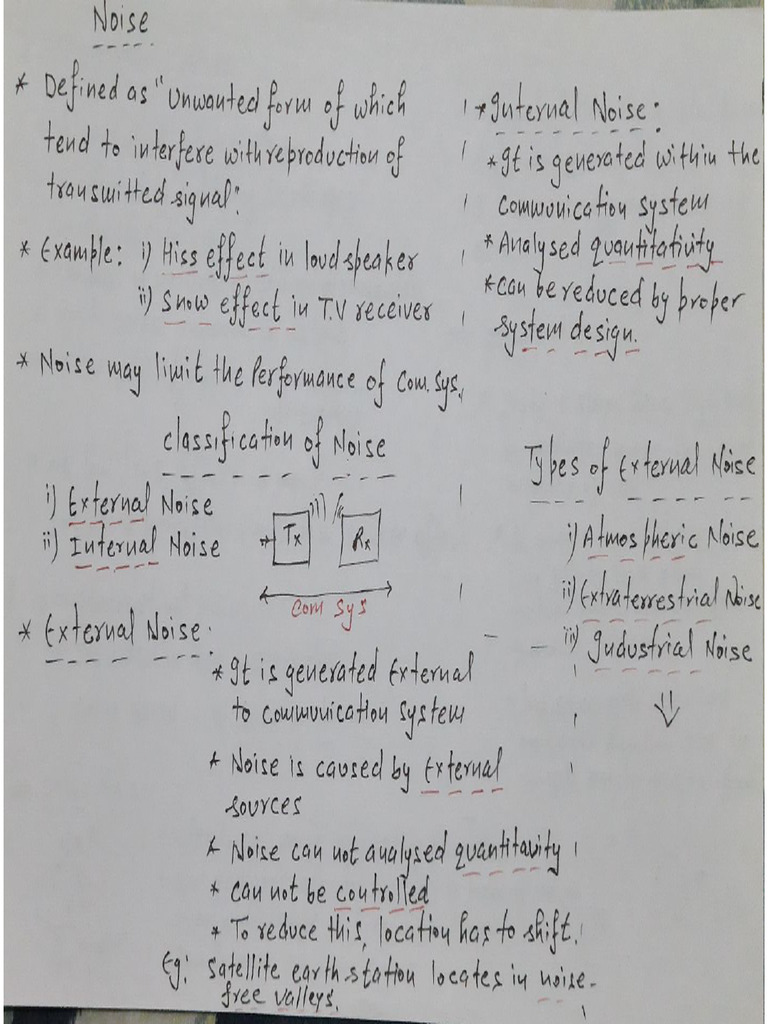 Noise
* Defined as "Unwanted form of which
tend to interfere with reproduction of
transmitted signal".
* Example: i) Hiss effect in loud speaker
ii) Snow effect in T.V receiver
* Noise may limit the Performance of Com. Sys.
classification of Noise
i) External Noise
ii) Internal Noise
Tx
Rx
Com Sys
* External Noise:
* It is generated External
to communication system
* Noise is caused by External
sources
* Noise can not analysed quantitavity
* can not be controlled
* To reduce this, location has to shift.
Eg: Satellite earth station locates in noise-
free valleys.
* Internal Noise:
* It is generated within the
communication system
* Analysed quantitativity
* can be reduced by proper
system design.
Types of External Noise
i) Atmospheric Noise
ii) Extraterrestrial Noise
iii) Industrial Noise